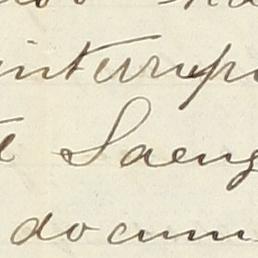 interrup
Saeng
docum